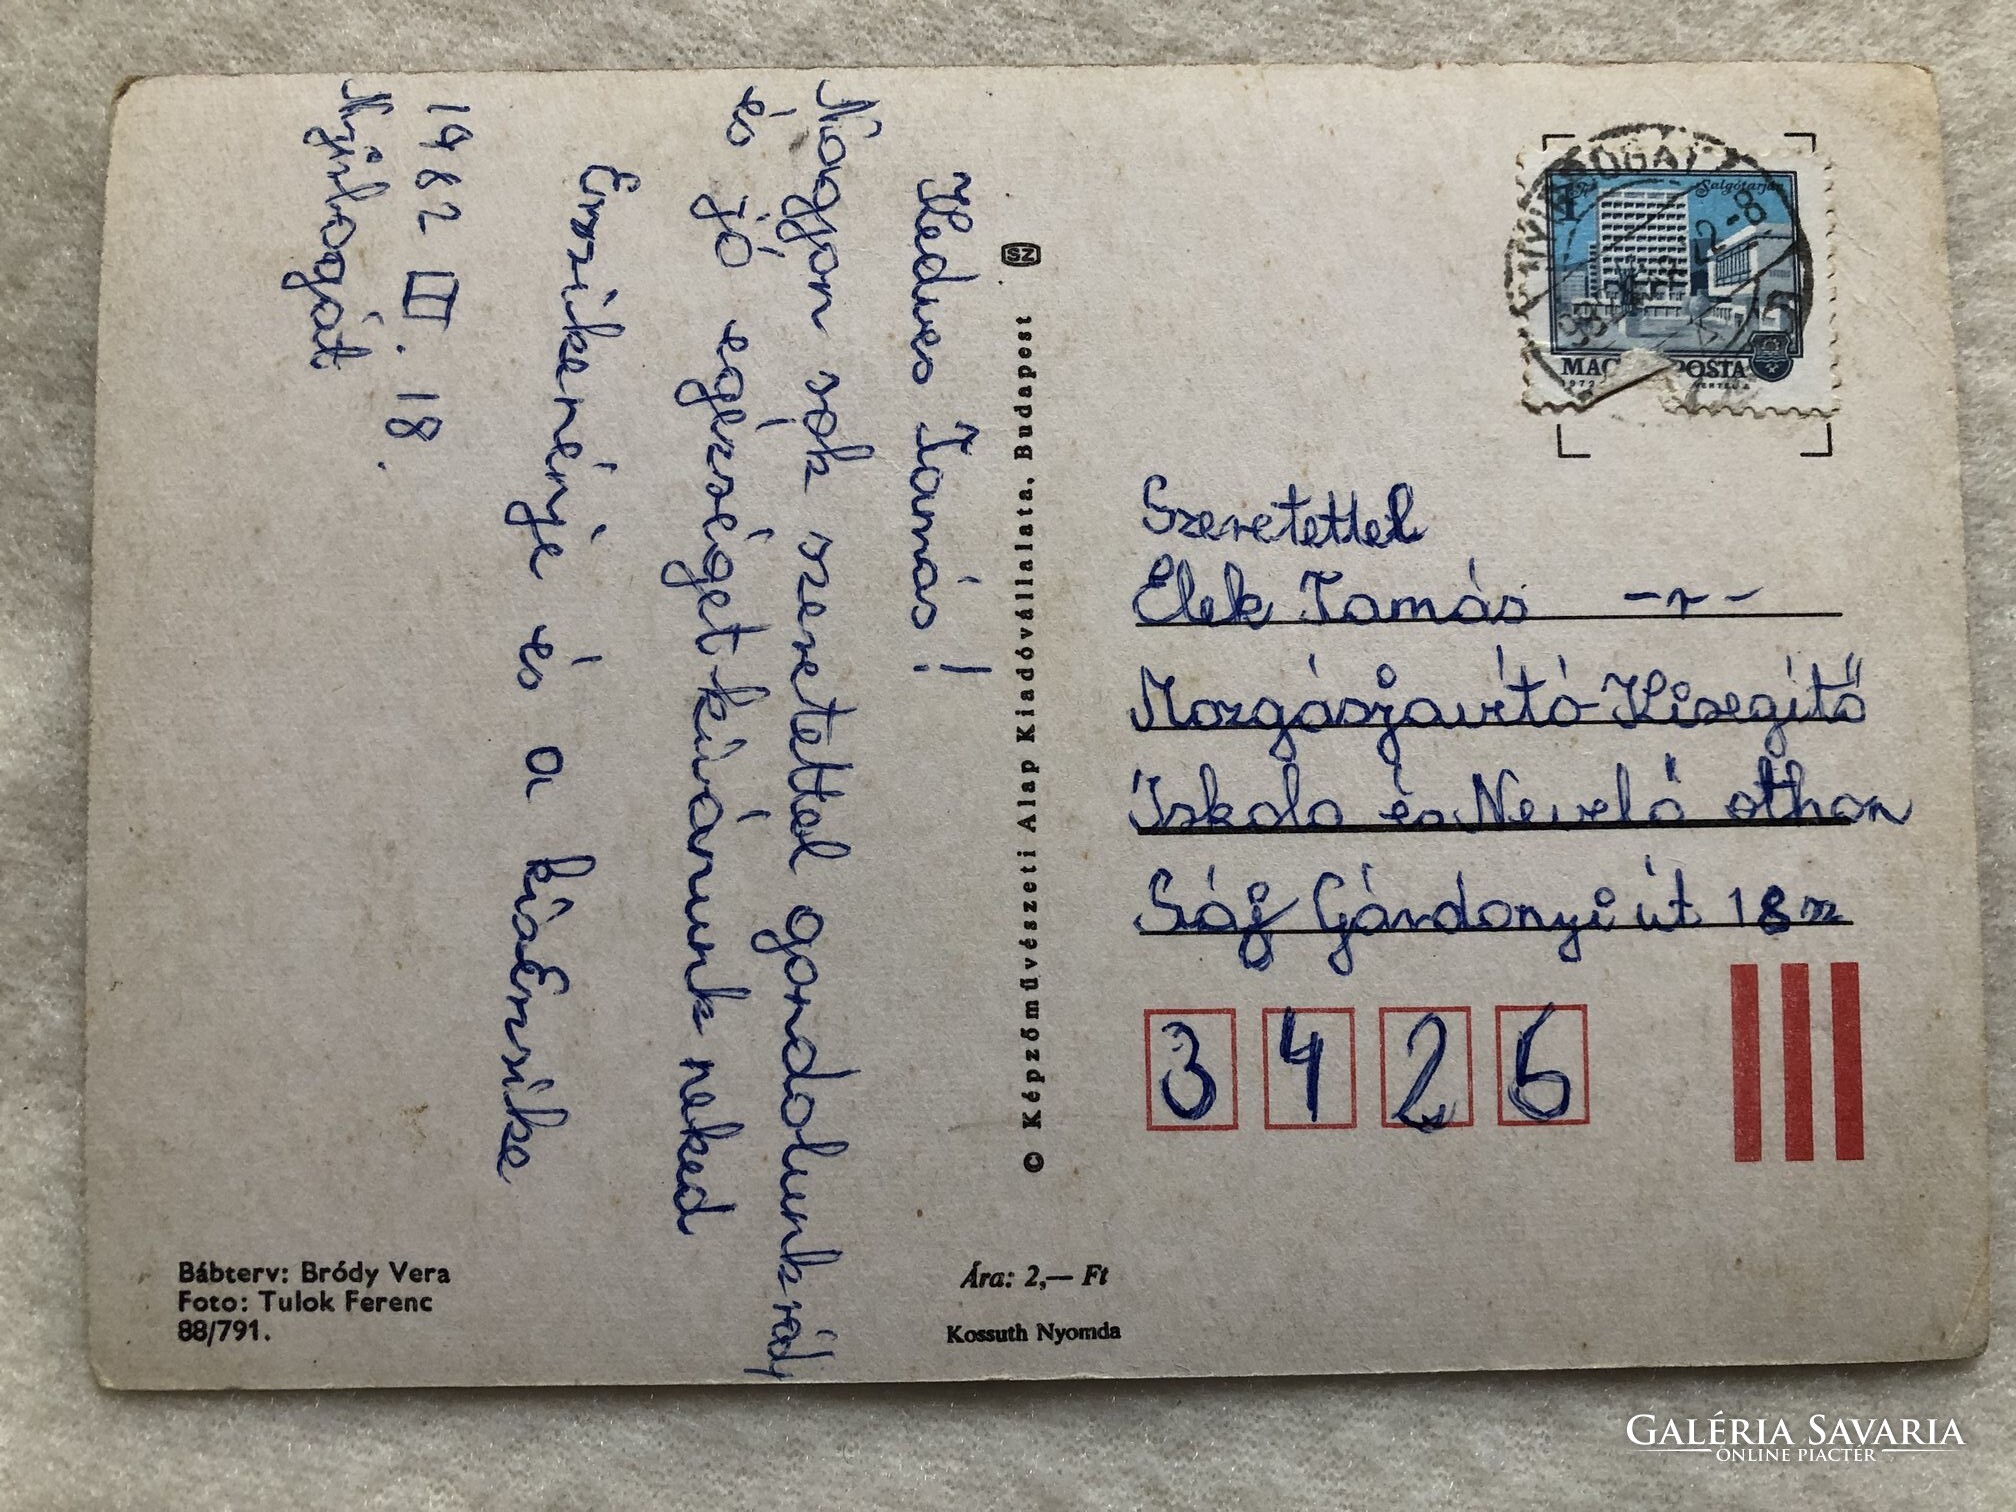 Hedves Tamás!
Nagyon sok szeretettel gondolunk rád,
és jó egészséget kívánunk neked
Erzsike nénje és a kis Erzsike
1982 III. 18.
Nyírbogát
© Képzőművészeti Alap Kiadóvállalata, Budapest SZ
1 Ft Salgótarján
MAG POSTA
1972
Szeretettel
Elek Tamás -r-
Mozgásjavító Kisegítő
Iskola és Nevelő otthon
Sáj Gárdonyi út 18
3426
Bábterv: Bródy Vera
Foto: Tulok Ferenc
88/791.
Ára: 2,— Ft
Kossuth Nyomda
GALÉRIA SAVARIA
ONLINE PIACTÉR